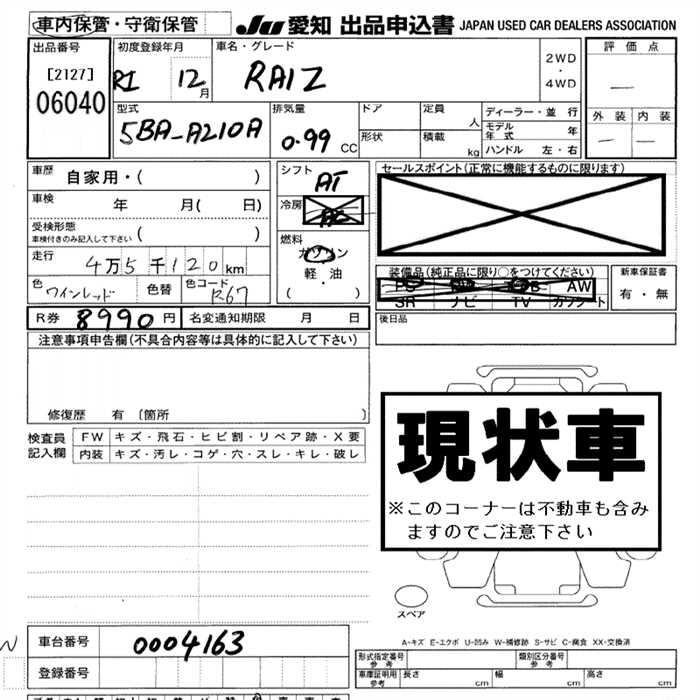 車内保管・守衛保管
JU 愛知 出品申込書 JAPAN USED CAR DEALERS ASSOCIATION
出品番号
[2127]
06040
初度登録年月
R1 12月
車名・グレード
RAIZ
2WD
・
4WD
評価点
—
外装 内装
— —
型式
5BA-A210A
排気量
0.99 CC
ドア
定員 人
形状
積載 kg
ディーラー・並行
モデル年式 年
ハンドル 左・右
車歴 自家用・( )
車検 年 月( 日)
受検形態
車検付きのみ記入して下さい ( )
走行 4万5千120km
色 ワインレッド 色替 色コード R67
シフト
AT
冷房
AC
燃料
ガソリン
軽・油
( )
セールスポイント(正常に機能するものに限ります)
装備品(純正品に限り○をつけてください)
PS
AW
SR ナビ TV カワシート
新車保証書
有・無
R券 8990円 名変通知期限 月 日
後日品
注意事項申告欄(不具合内容等は具体的に記入して下さい)
修復歴 有 [箇所 ]
検査員記入欄
FW キズ・飛石・ヒビ割・リペア跡・X要
内装 キズ・汚レ・コゲ・穴・スレ・キレ・破レ
現状車
※このコーナーは不動車も含み
ますのでご注意下さい
スペア
A-キズ E-エクボ U-凹み W-補修跡 S-サビ C-腐食 XX-交換済
車台番号 0004163
登録番号
形式指定番号
参考
類別区分番号
参考
車庫証明用
参考
長さ cm 幅 cm 高さ cm